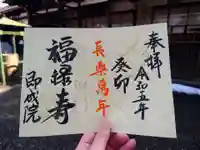 奉拝
令和五年
癸卯
長楽萬年
福禄寿
即成院